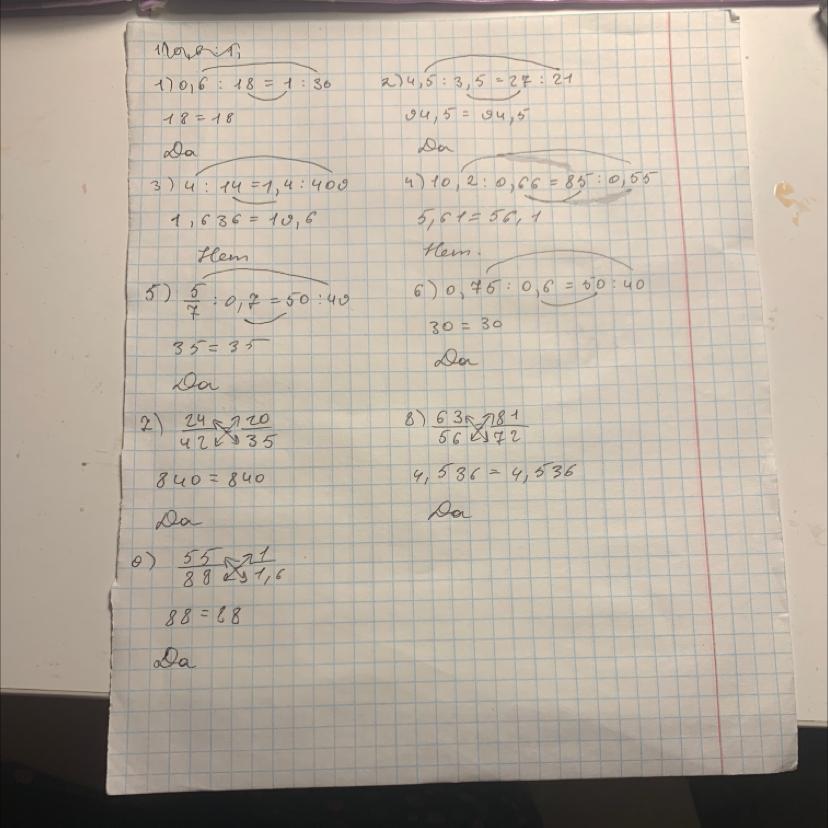 1) 0,6 : 18 = 1 : 30
18 = 18
Да
2) 4,5 : 3,5 = 27 : 21
94,5 = 94,5
Да
3) 4 : 14 = 1,4 : 409
1,636 = 19,6
Нет
4) 10,2 : 0,66 = 85 : 0,55
5,61 = 56,1
Нет.
5) 5/7 : 0,7 = 50 : 49
35 = 35
Да
6) 0,75 : 0,6 = 50 : 40
30 = 30
Да
7) 24/42 20/35
840 = 840
Да
8) 63/56 81/72
4,536 = 4,536
Да
9) 55/88 1/1,6
88 = 88
Да